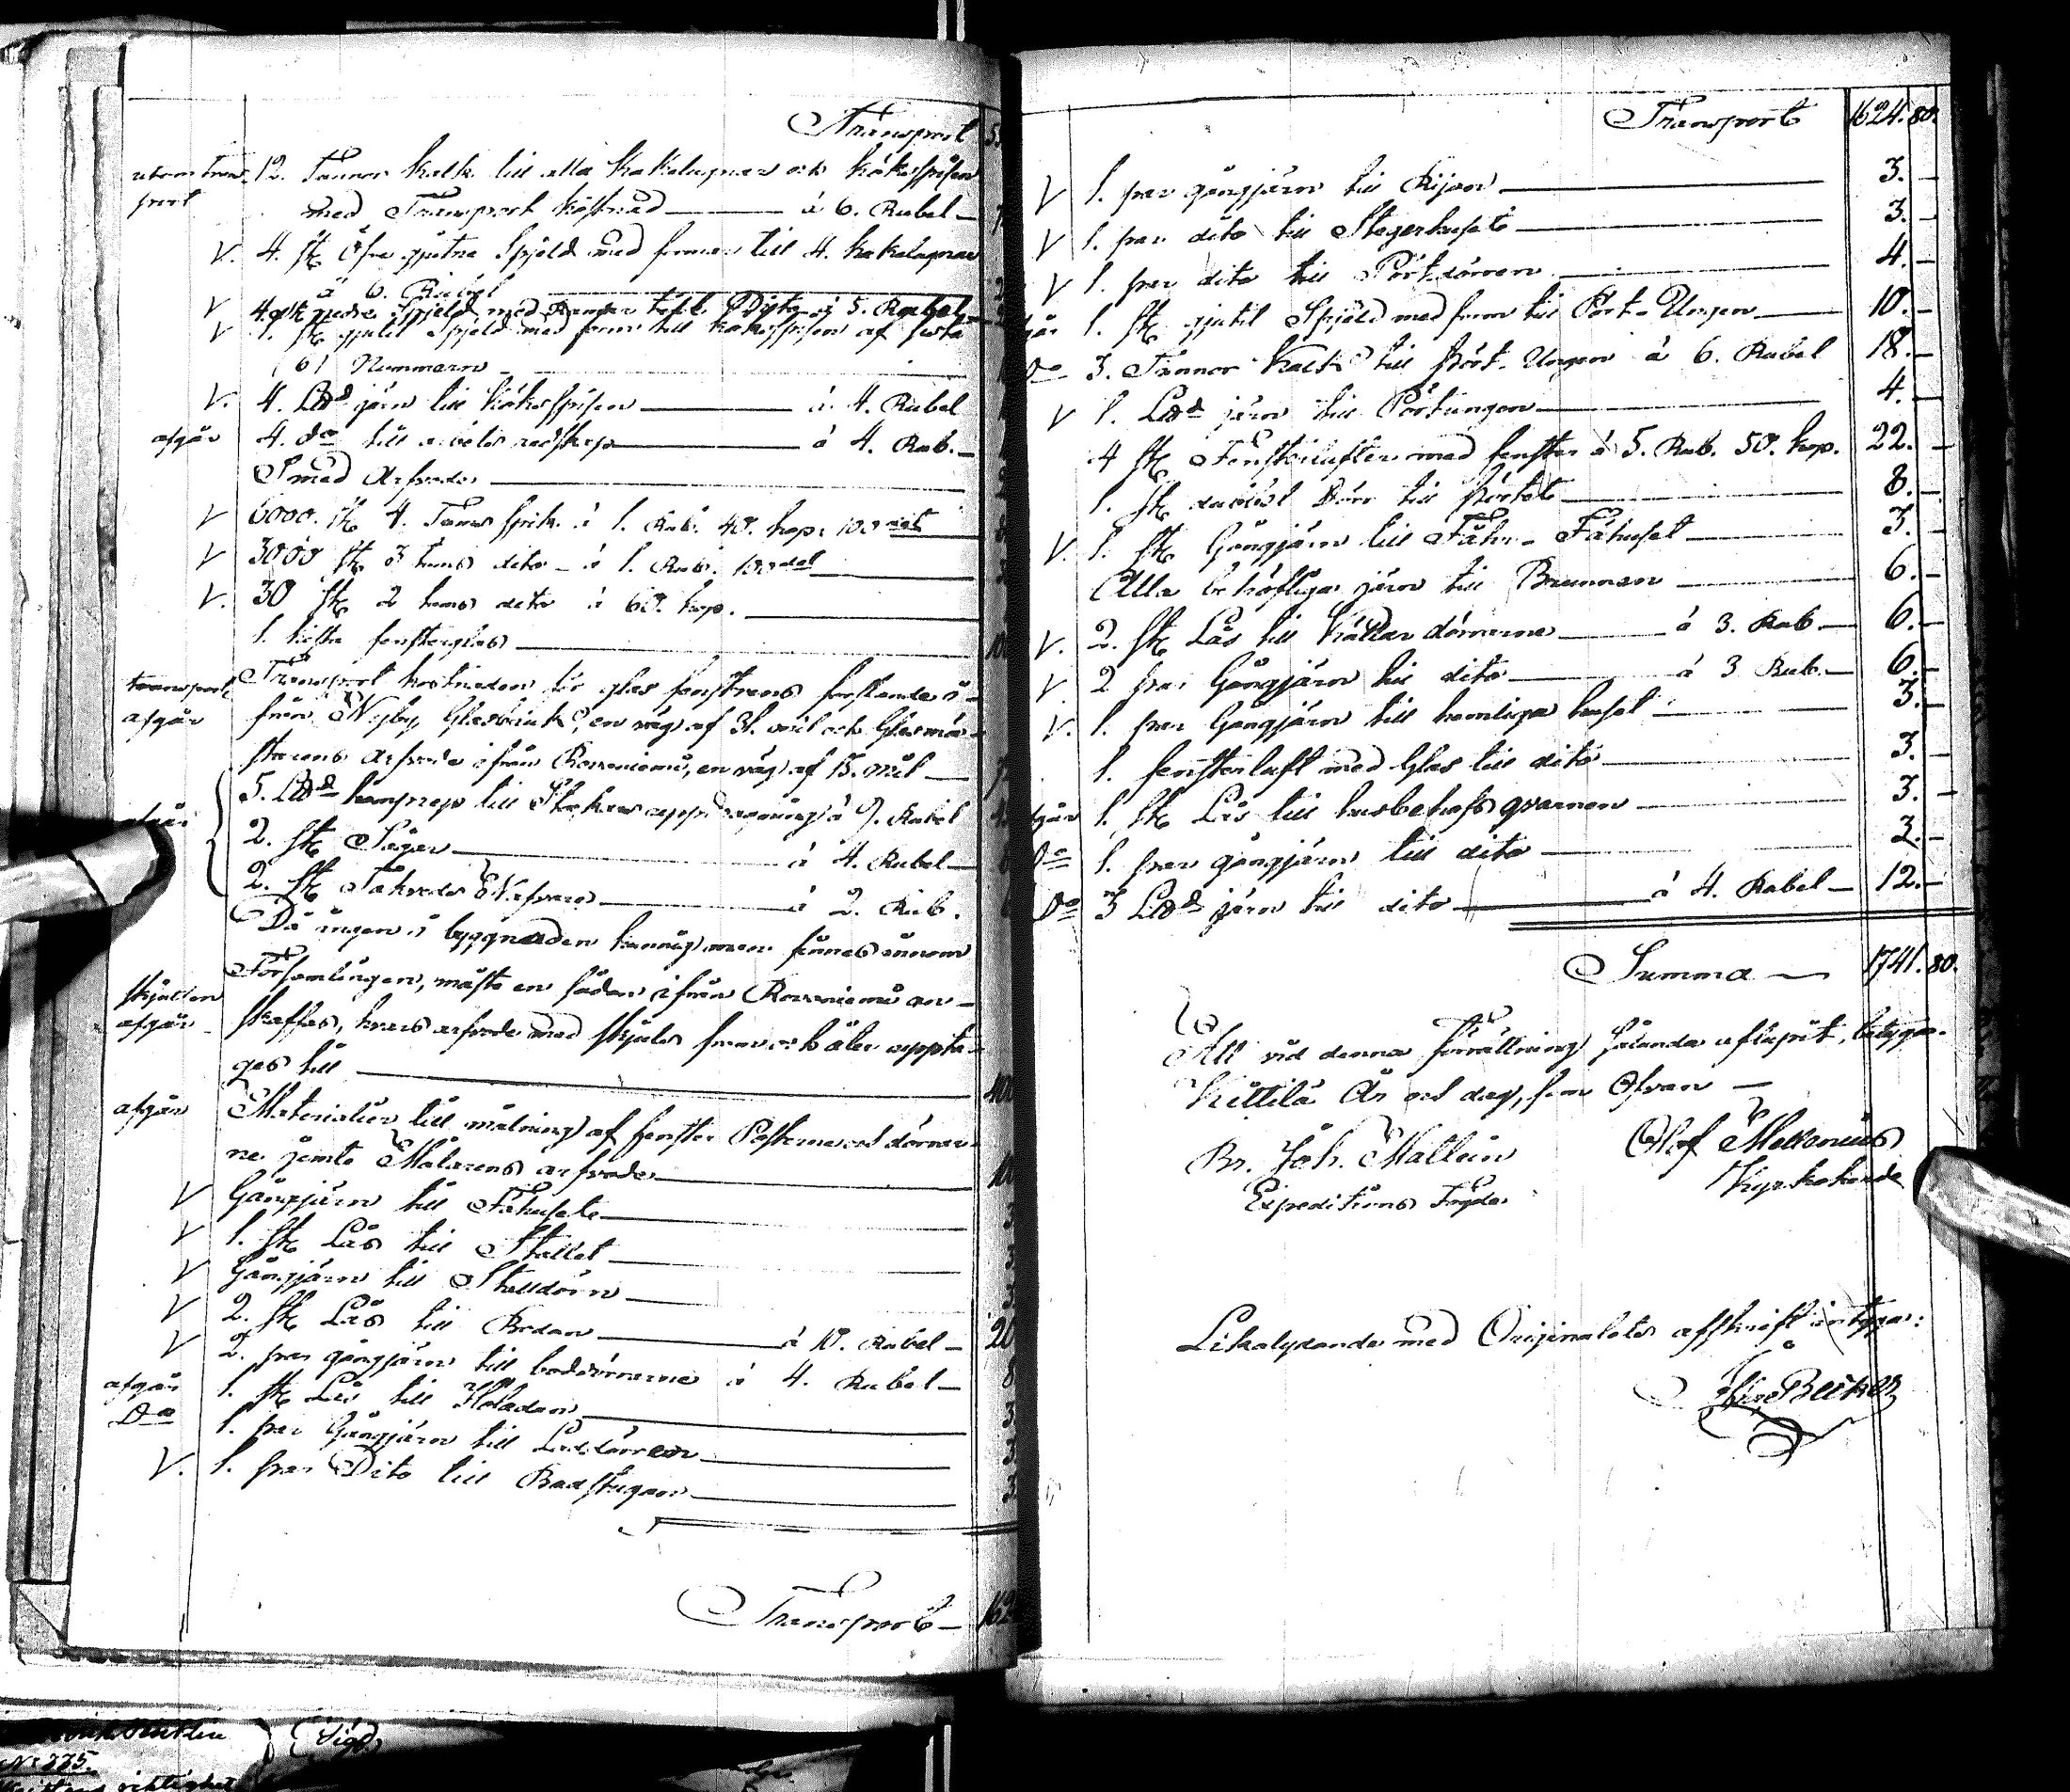 Transport
utom trans- 12. Tunnor kalk till alla kakelugnar och köksspisen
port med Transport kostnad — à 6. Rubel —
V. 4. st Öfre gjutne Spjeld med former till 4. kakelugnar
à 6. Rubel
V 4. st nedre Spjeld med Ramar till Dito à 5. Rubel
V 1. st gjutit Spjeld med form till köksspisen af
(6) Nummern —
V. 4. L℔d järn till köksspisen — à 4. Rubel
afgår 4. do till arbets redskap — à 4. Rub. —
Smed Arfvode —
V 6000. st 4. Tums spik à 1. Rub. 40. kop. 100det
V 3000 st 3 tums dito — à 1. Rub. 100det
V. 30 st 2 tums dito à 60. kop. —
1. kista fensterglas —
transport Transport kostnaden för glas fenstrens forslande i-
afgår från Nyby Glasbruk, en väg af 31. mil och Glasmä-
starens arfvode ifrån Rovaniemi, en väg af 15. mil —
afgår 5. L℔d hamprep till Stockars uppdragning à 9. Rubel
2. st Sågar — à 4. Rubel —
2. st Nafvare — à 2. Rub.
Då ingen i byggnaden kunnig man finnes innom
Församlingen, måste en sådan ifrån Rovaniemi an-
skjutsen skaffas, hvars arfvode med skjuts fram och åter uppta-
afgår ges till — 400
afgår Materialier till målning af fenster Posterne och dörrar-
ne jemte Målarens arfvode — 100
V Gångjärn till Fähuset — 3
V 1. st Lås till Stallet — 3
V Gångjärn till Stalldörrn — 3
V 2. st Lås till Bodan — à 10. Rubel — 20
V 2. par gångjärn till boddörrarne à 4. Rubel — 8
afgår 1. st Lås till Höladan — 3
Do 1. par Gångjärn till Laddörren — 3
V. 1. par Dito till Badstugan — 3
Transport — 162
Transport 1624. 80.
V 1. par gångjärn till Rijan — 3. —
V 1. par dito till Stegerhuset — 3. —
V 1. par dito till Pörtdörren — 4. —
går 1. st gjutit Spjeld med form till Pört-Ungen — 10. —
Do 3. Tunnor Kalk till Pört-Ungen à 6. Rubel 18. —
V 1. L℔d järn till Pörtungen — 4. —
4 st Fensterlufter med fenster à 5. Rub. 50. kop. 22. —
1. st Dörr till Pörtet — 8. —
V. 1. st Gångjärn till Får-Fähuset — 3. —
Alla behöfliga järn till Brunnen — 6. —
V. 2. st Lås till Källar dörrarne — à 3. Rub — 6. —
V 2 par Gångjärn till dito — à 3 Rub. — 6. —
V. 1. par Gångjärn till hemliga huset — 3. —
1. fensterluft med Glas till dito — 3. —
går 1. st Lås till husbehofs qvarnen — 3. —
Do 1. par gångjärn till dito — 3. —
Do 3 L℔d järn till dito — à 4. Rubel — 12. —
Summa — 1741. 80.
Att vid denna förrättning sålunda aflupit, betygar.
Kittilä År och dag, som Ofvan —
Br. Joh. Mattein Olof Mellenius
Expeditions Fogde. Kyrkoherde
Likalydande med Originalets afskrift intygar: